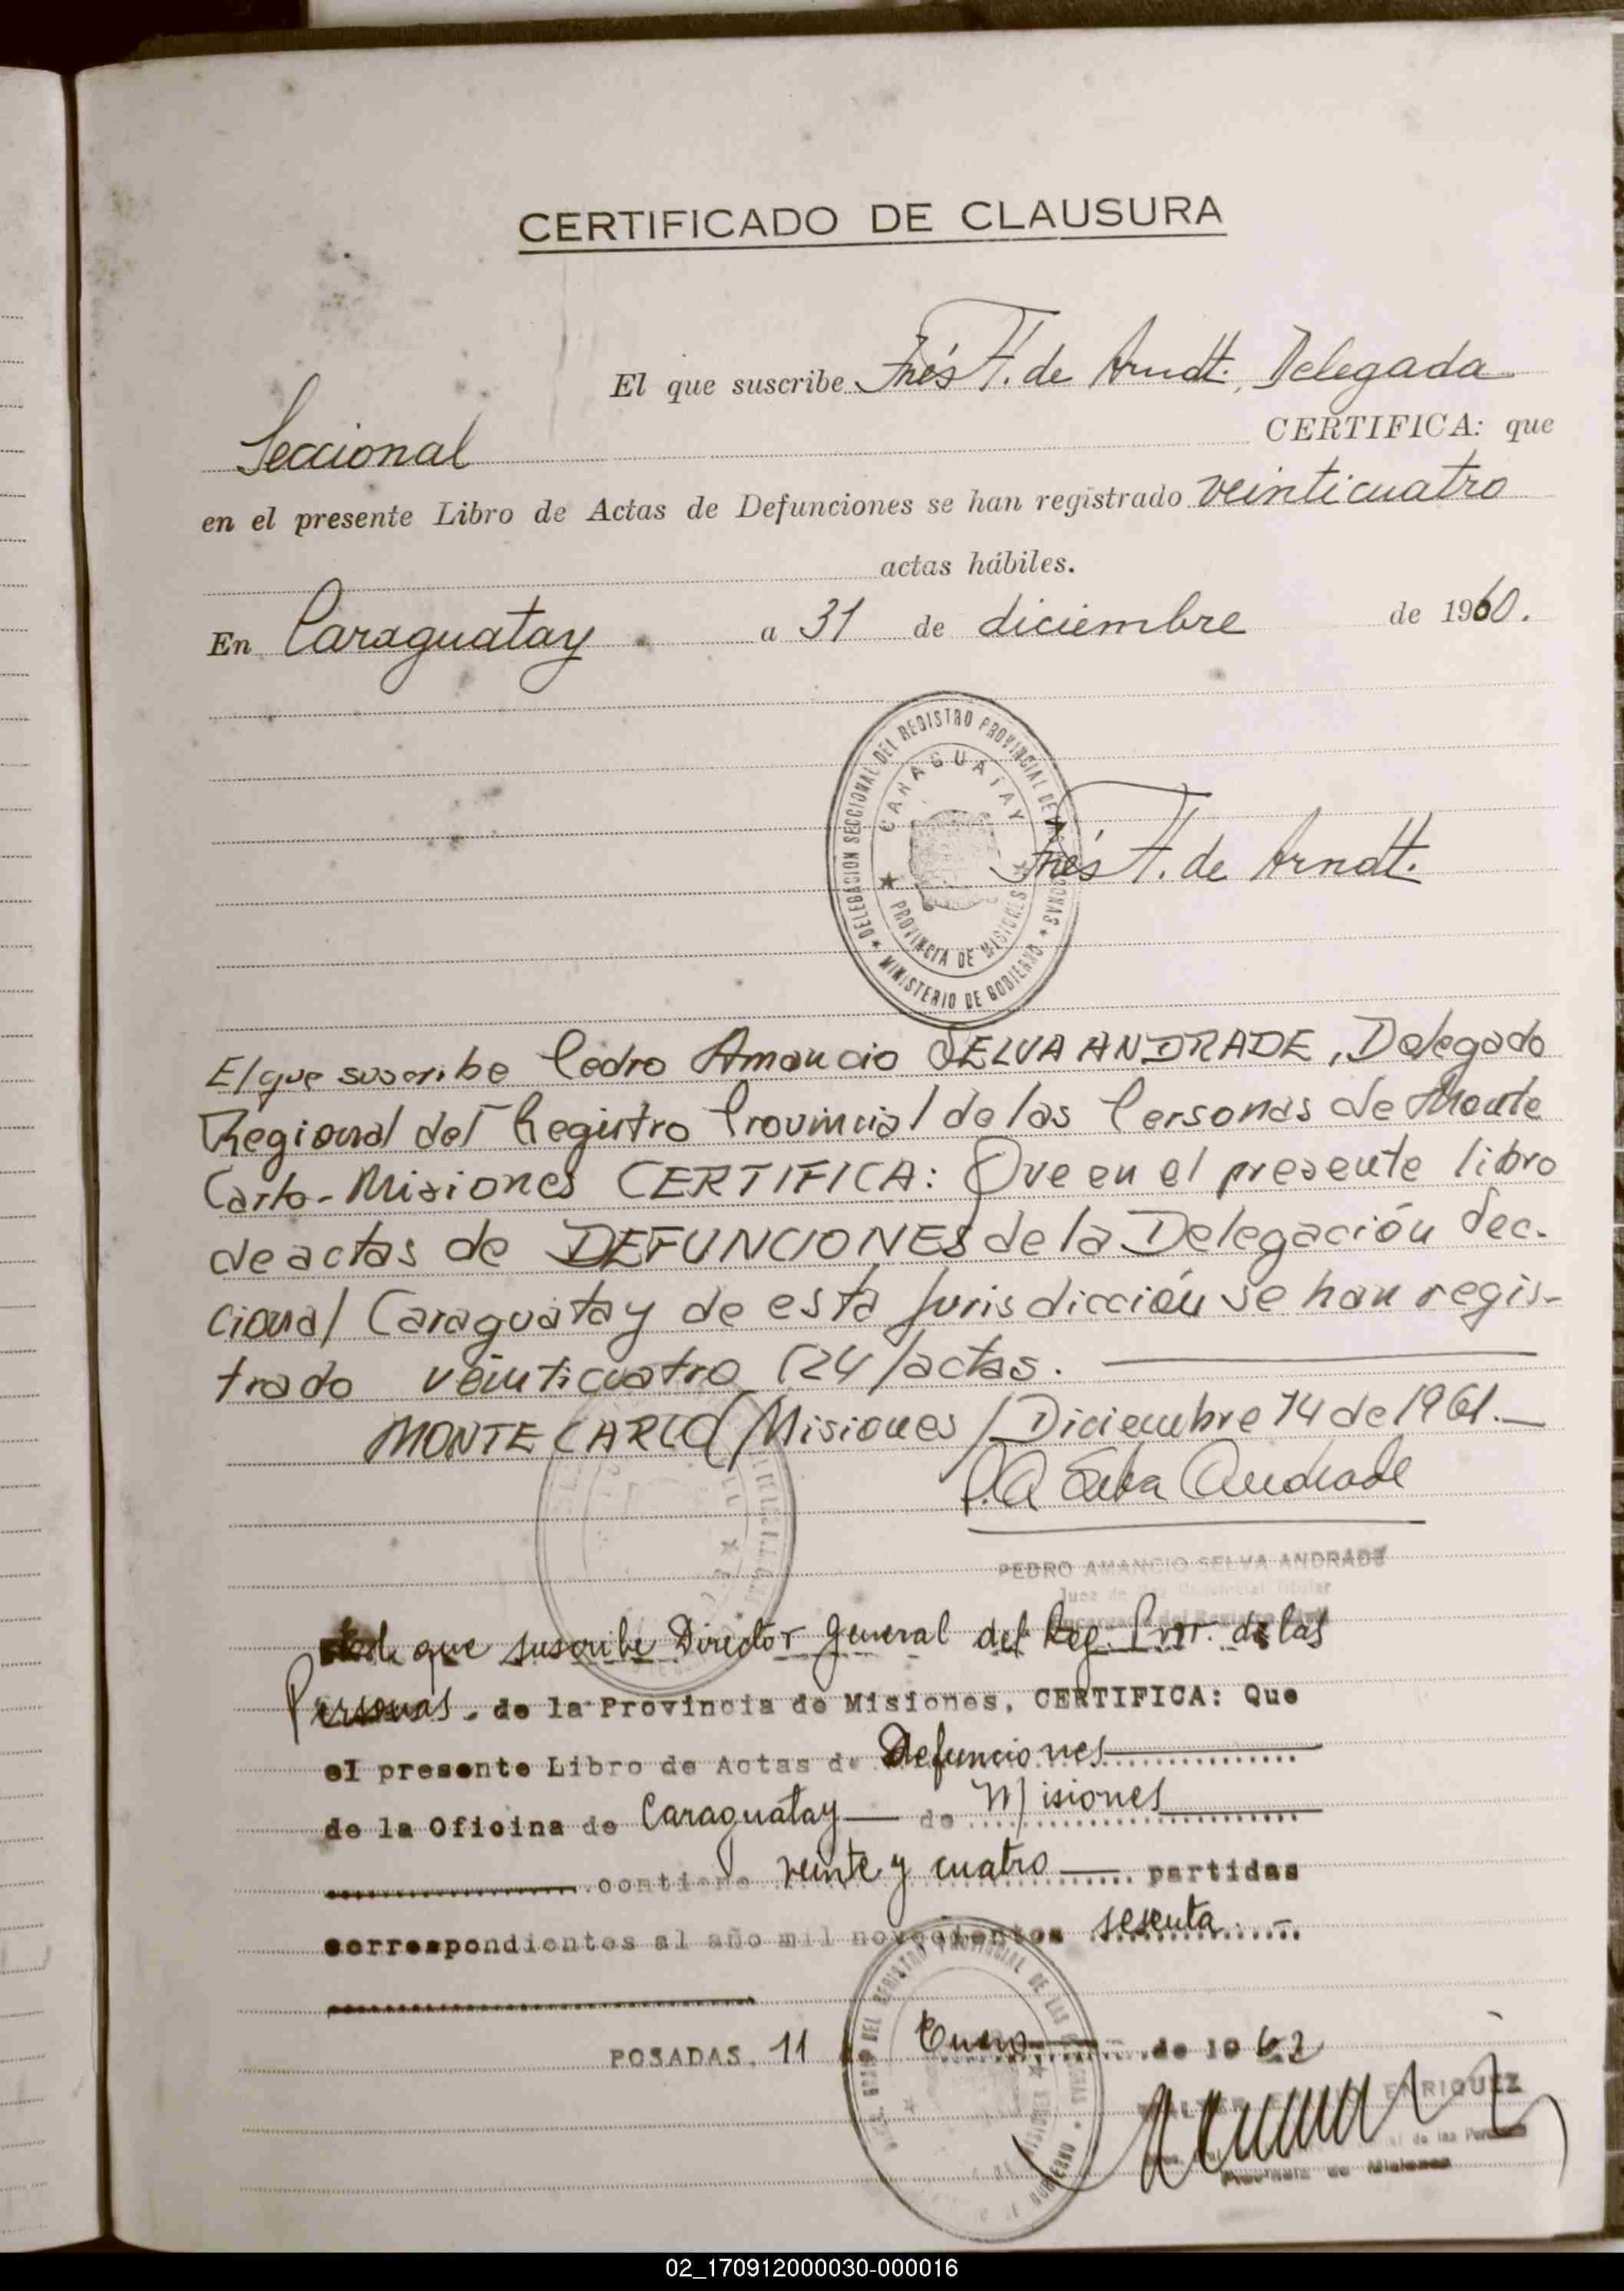 CERTIFICADO DE CLAUSURA
El que suscribe Inés H. de Arndt. Delegada
Seccional CERTIFICA: que
en el presente Libro de Actas de Defunciones se han registrado veinticuatro
actas hábiles.
En Caraguatay a 31 de diciembre de 1960.
DELEGACION SECCIONAL DEL REGISTRO PROVINCIAL DE PERSONAS
MINISTERIO DE GOBIERNO
CARAGUATAY
PROVINCIA DE MISIONES
Inés H. de Arndt.
El que suscribe Pedro Amancio SELVA ANDRADE, Delegado
Regional del Registro Provincial de las Personas de Monte
Carlo-Misiones CERTIFICA: Que en el presente libro
de actas de DEFUNCIONES de la Delegación Sec-
cional Caraguatay de esta Jurisdicción se han regis-
trado veinticuatro (24/actas.
MONTE CARLO/Misiones/Diciembre 14 de 1961.
P.A Selva Andrade
PEDRO AMANCIO SELVA ANDRADE
Juez de Paz Provincial Titular
Encargado del Registro Civil
el que suscribe Director General del Reg. Prov. de las
Personas. de la Provincia de Misiones, CERTIFICA: Que
el presente Libro de Actas de Defunciones
de la Oficina de Caraguatay de Misiones
contiene veinte y cuatro partidas
correspondientes al año mil novecientos sesenta.
POSADAS, 11 de Enero de 1962
DEL REGISTRO PROVINCIAL DE LAS PERSONAS
MISIONES
GOBIERNO
WALTER ENRIQUEZ
de las Personas
Provincia de Misiones
02_170912000030-000016